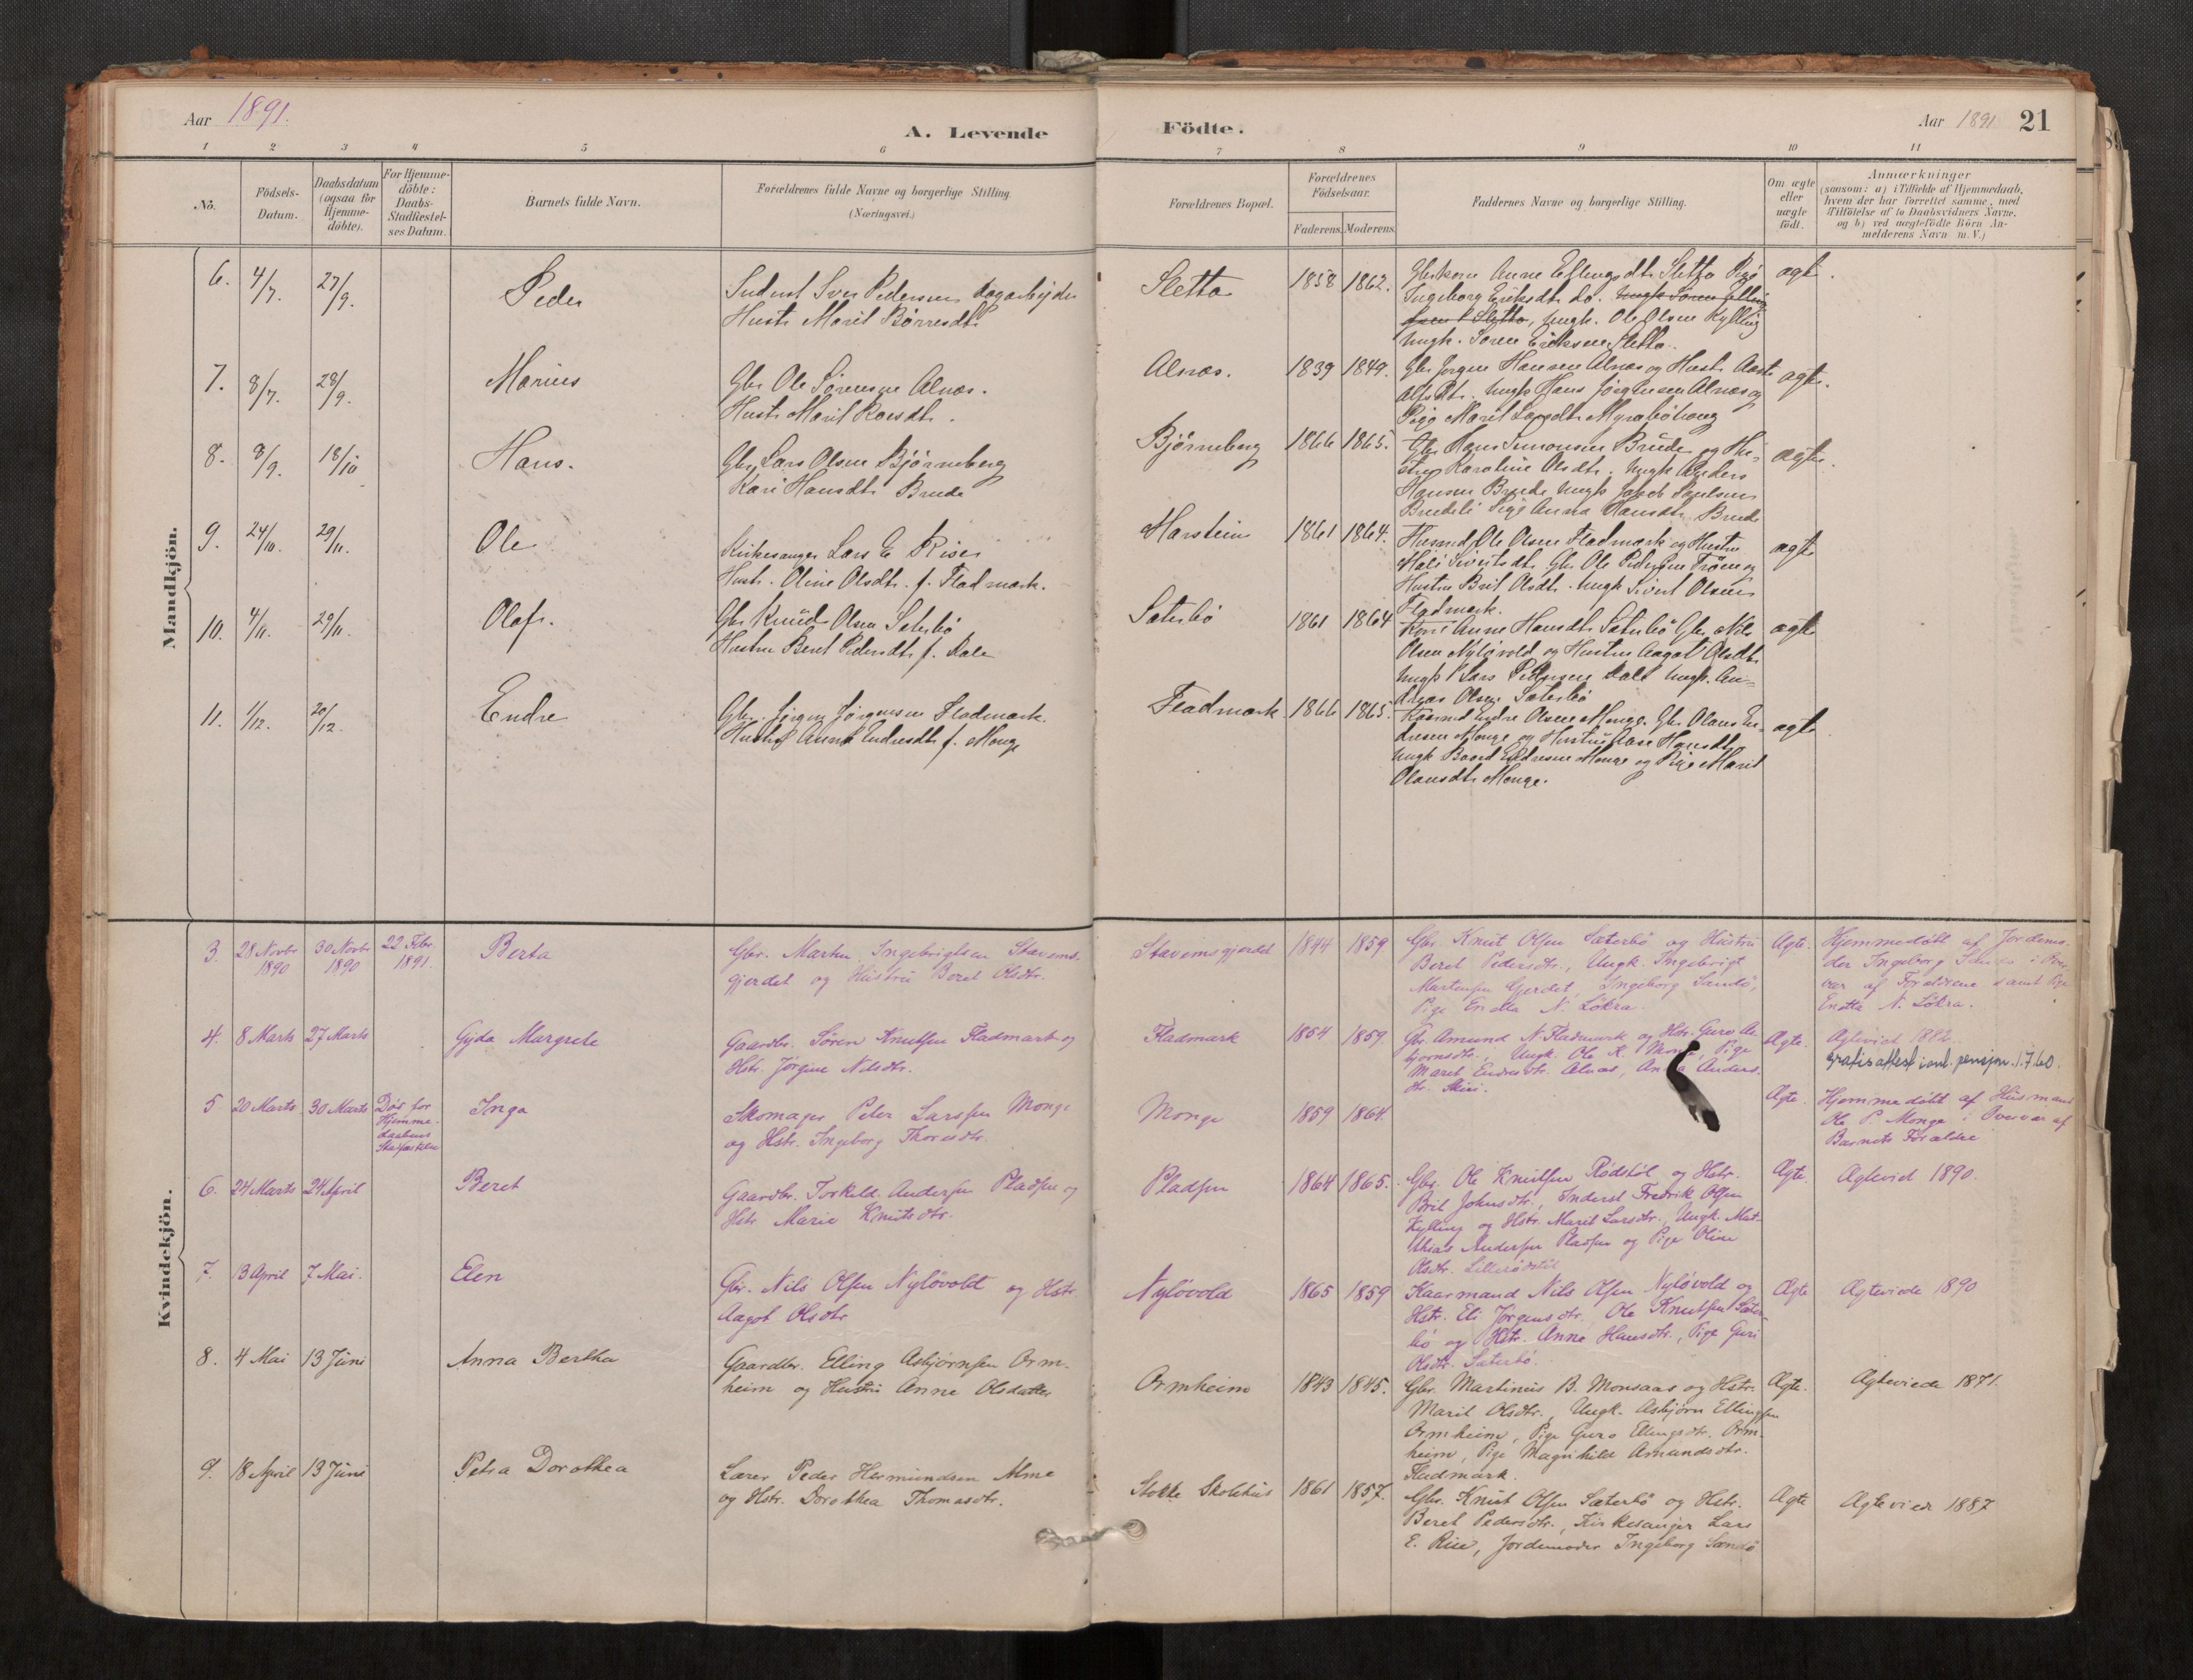 Aar 1891.
A. Levende
Födte.
Aar 1891
21
1 2 3 4 5 6 7 8 9 10 11
No.
Födsels-
Datum.
Daabsdatum
(ogsaa for
Hjemme-
döbte).
For Hjemme-
döbte:
Daabs-
Stadfæstel-
ses Datum.
Barnets fulde Navn.
Forældrenes fulde Navne og borgerlige Stilling.
(Næringsvei.)
Forældrenes Bopæl.
Forældrenes
Födselsaar.
Faderens. Moderens.
Faddernes Navne og borgerlige Stilling.
Om ægte
eller
uægte
födt.
Anmærkninger
(saasom: a) i Tilfælde af Hjemmedaab,
hvem der har forrettet samme, med
Tilföielse af to Daabsvidners Navne,
og b) ved uægtefödte Börn An-
melderens Navn m. V.)
Mandkjön.
6. 4/7. 27/9. Peder
Inderst Iver Pedersen dagarbejder
Hustr Marit Børresdtr
Sletta 1858 1862.
Anne Ellingsdtr Sletta Pige
Ingeborg Eriksdtr do.
Sletta, Ungk. Ole Olsen Kylling
Ungk. Søren Eriksen Sletta.
ægte.
7. 8/7. 28/9. Marius
Gbr Ole Sørensen Alnæs.
Hustr Marit Larsdtr.
Alnæs. 1839 1849.
Gbr Jørgen Hansen Alnæs og Hustr
Ungk Hans Jørgensen Alnæs og
Pige Marit Larsdtr Myrabøhaug
ægte.
8. 8/9. 18/10 Hans.
Gbr Lars Olsen Bjørneberg
Kari Hansdtr Brude
Bjørneberg 1866 1865.
Gbr Hans Simonsen Brude og Hu-
stru Karoline Olsdtr. Ungk Anders
Hansen Brude Ungk Jakob Paulsen
Brudeli Pige Anna Hansdtr Brude
ægte.
9. 24/10. 29/11. Ole
Kirkesanger Lars E Riise
Hustr. Oline Olsdtr. f. Fladmark.
Marstein 1861 1864.
Husmd Ole Olsen Fladmark og Hustru
Mali Sivertsdtr Gbr Ole Pedersen Trøen og
Hustru Brit Olsdtr. Ungk Sivert Olsen
Fladmark.
ægte
10. 4/11. 29/11. Olaf.
Gbr Knud Olsen Sæterbø
Hustru Beret Pedersdtr f. Dale
Sæterbø 1861 1864
Anne Hansdtr Sæterbø Gbr Nils
Olsen Nyløvold og Hustru Aagot Olsdtr
Ungk Lars Pedersen Dale Ungk. An-
dreas Olsen Sæterbø
ægte
11. 1/12. 20/12. Endre
Gbr. Jørgen Jørgensen Fladmark.
Hustr Anne Endresdtr f. Monge
Fladmark. 1866 1865.
Kaarmd Endre Olsen Monge. Gbr Olaus En-
dresen Monge og Hustru Hansdtr
Ungk Baard Endresen Monge og Pige Marit
Olausdtr Monge.
ægte
Kvindekjön.
3. 28 Novbr 1890 30 Novbr 1890 22 Febr. 1891. Berta
Gbr. Martin Ingebrigtsen Stavems-
gjerdet og Hustru Beret Olsdtr.
Stavemsgjerdet 1844 1859
Gbr. Knut Olsen Sæterbö og Hustru
Beret Pedersdtr., Ungk. Ingebrigt
Martinsen Gjerdet, Ingeborg Sandö,
Pige Enetta N. Lökra.
Ægte.
Hjemmedöbt af Jordemo-
der Ingeborg Sandö i Over-
vær af Forældrene samt Pige
Enetta N. Lökra.
4. 8 Marts 27 Marts Gyda Margrete
Gaardbr. Sören Knutsen Fladmark og
Hstr. Jörgine Nilsdtr.
Fladmark 1854 1859.
Gbr. Amund N. Fladmark og Hstr. Guro As-
bjornsdtr., Ungk. Ole K. Monge, Pige
Maret Endresdtr. Alnæs, Anna Anders-
dtr. Skiri.
Ægte.
Ægteviet 1882.
Gratis attest i anl. pensjon. 1.7 60.
5 20 Marts 30 Marts Døs for
Hjemme-
daabens
Stadfæstelse
Inga
Skomager Peter Larssen Monge
og Hstr. Ingeborg Thoresdtr.
Monge 1859 1864.
Ægte.
Hjemmedöbt af Husmand
Ole P. Monge i Overvær af
Barnets Forældre
6. 24 Marts 24 April Beret
Gaardbr. Torkild Andersen Pladsen og
Hstr Marie Knutsdtr.
Pladsen 1864 1865.
Gbr. Ole Knutsen Rödstöl og Hstr.
Brit Johnsdtr., Inderst Fredrik Olsen
Kylling og Hstr. Marit Larsdtr., Ungk. Mat-
thias Andersen Pladsen og Pige Oline
Olsdtr. Lillerödstöl
Ægte.
Ægteviet 1890.
7. 13 April 7 Mai. Elen
Gbr. Nils Olsen Nylövold og Hstr.
Aagot Olsdtr
Nylövold 1865 1859
Kaarmand Nils Olsen Nylövold og
Hstr. Eli Jörgensdtr, Ole Knutsen Sæter-
bö og Hstr. Anne Hansdtr., Pige Guri
Olsdtr. Sæterbö.
Ægte
Ægteviede 1890
8. 4 Mai 13 Juni Anna Bertha
Gaardbr. Elling Asbjörnsen Orm-
heim og Hustru Anne Olsdatter
Ormheim 1843 1845.
Gbr. Martinus B. Monsaas og Hstr.
Marit Olsdtr., Ungk. Asbjörn Ellingsen
Ormheim, Pige Guro Ellingsdtr. Orm-
heim, Pige Magnhild Amundsdtr.
Fladmark.
Ægte.
Ægteviede 1871.
9. 18 April 13 Juni Petra Dorothea
Lærer Peder Hermundsen Alme
og Hstr. Dorothea Thomasdtr.
Stokke Skolehus 1861 1857.
Gbr. Knut Olsen Sæterbö og Hstr.
Beret Pedersdtr., Kirkesanger Lars
E. Riise, Jordemoder Ingeborg Sandö
Ægte
Ægteviede 1887